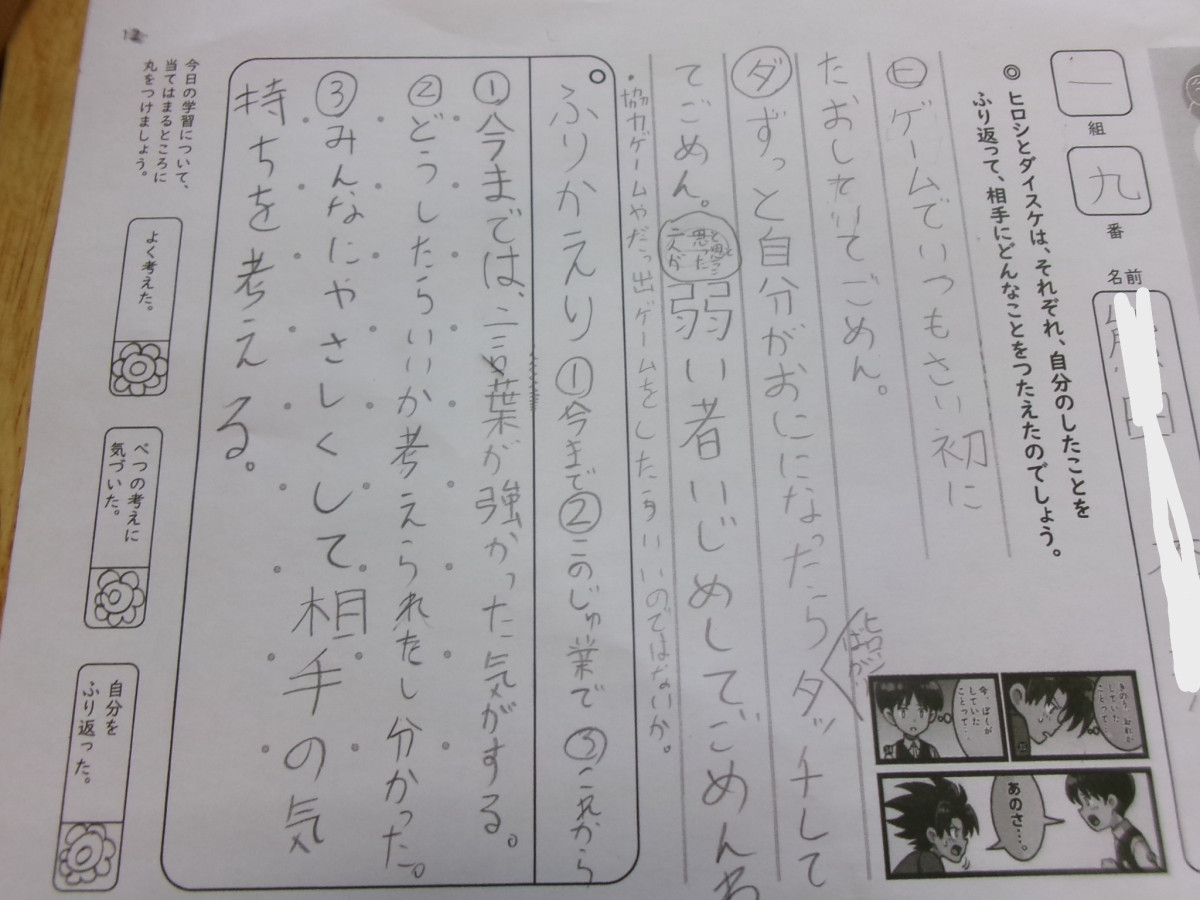 一
組
九
番
名前
◎ ヒロシとダイスケは、それぞれ、自分のしたことを
ふり返って、相手にどんなことをつたえたのでしょう。
きのう、おれが
していた
ことって…
今、ぼくが
していた
ことって…
あのさ…。
ヒ ゲームでいつもさい初に
たおしたいてごめん。
ダ ずっと自分がおにになったらタッチして
ヒロシ
ばか
てごめん。
弱い者いじめしてごめんね
二人が
思った
・協力ゲームやだっ出ゲームをしたすいいのではないか。
ふりかえり ①今まで ②このじゅ業で ③これから
①今までは、言葉が強かった気がする。
②どうしたらいいか考えられたし分かった。
③みんなにやさしくして相手の気
持ちを考える。
今日の学習について、
当てはまるところに
丸をつけましょう。
よく考えた。
べつの考えに
気づいた。
自分を
ふり返った。
12